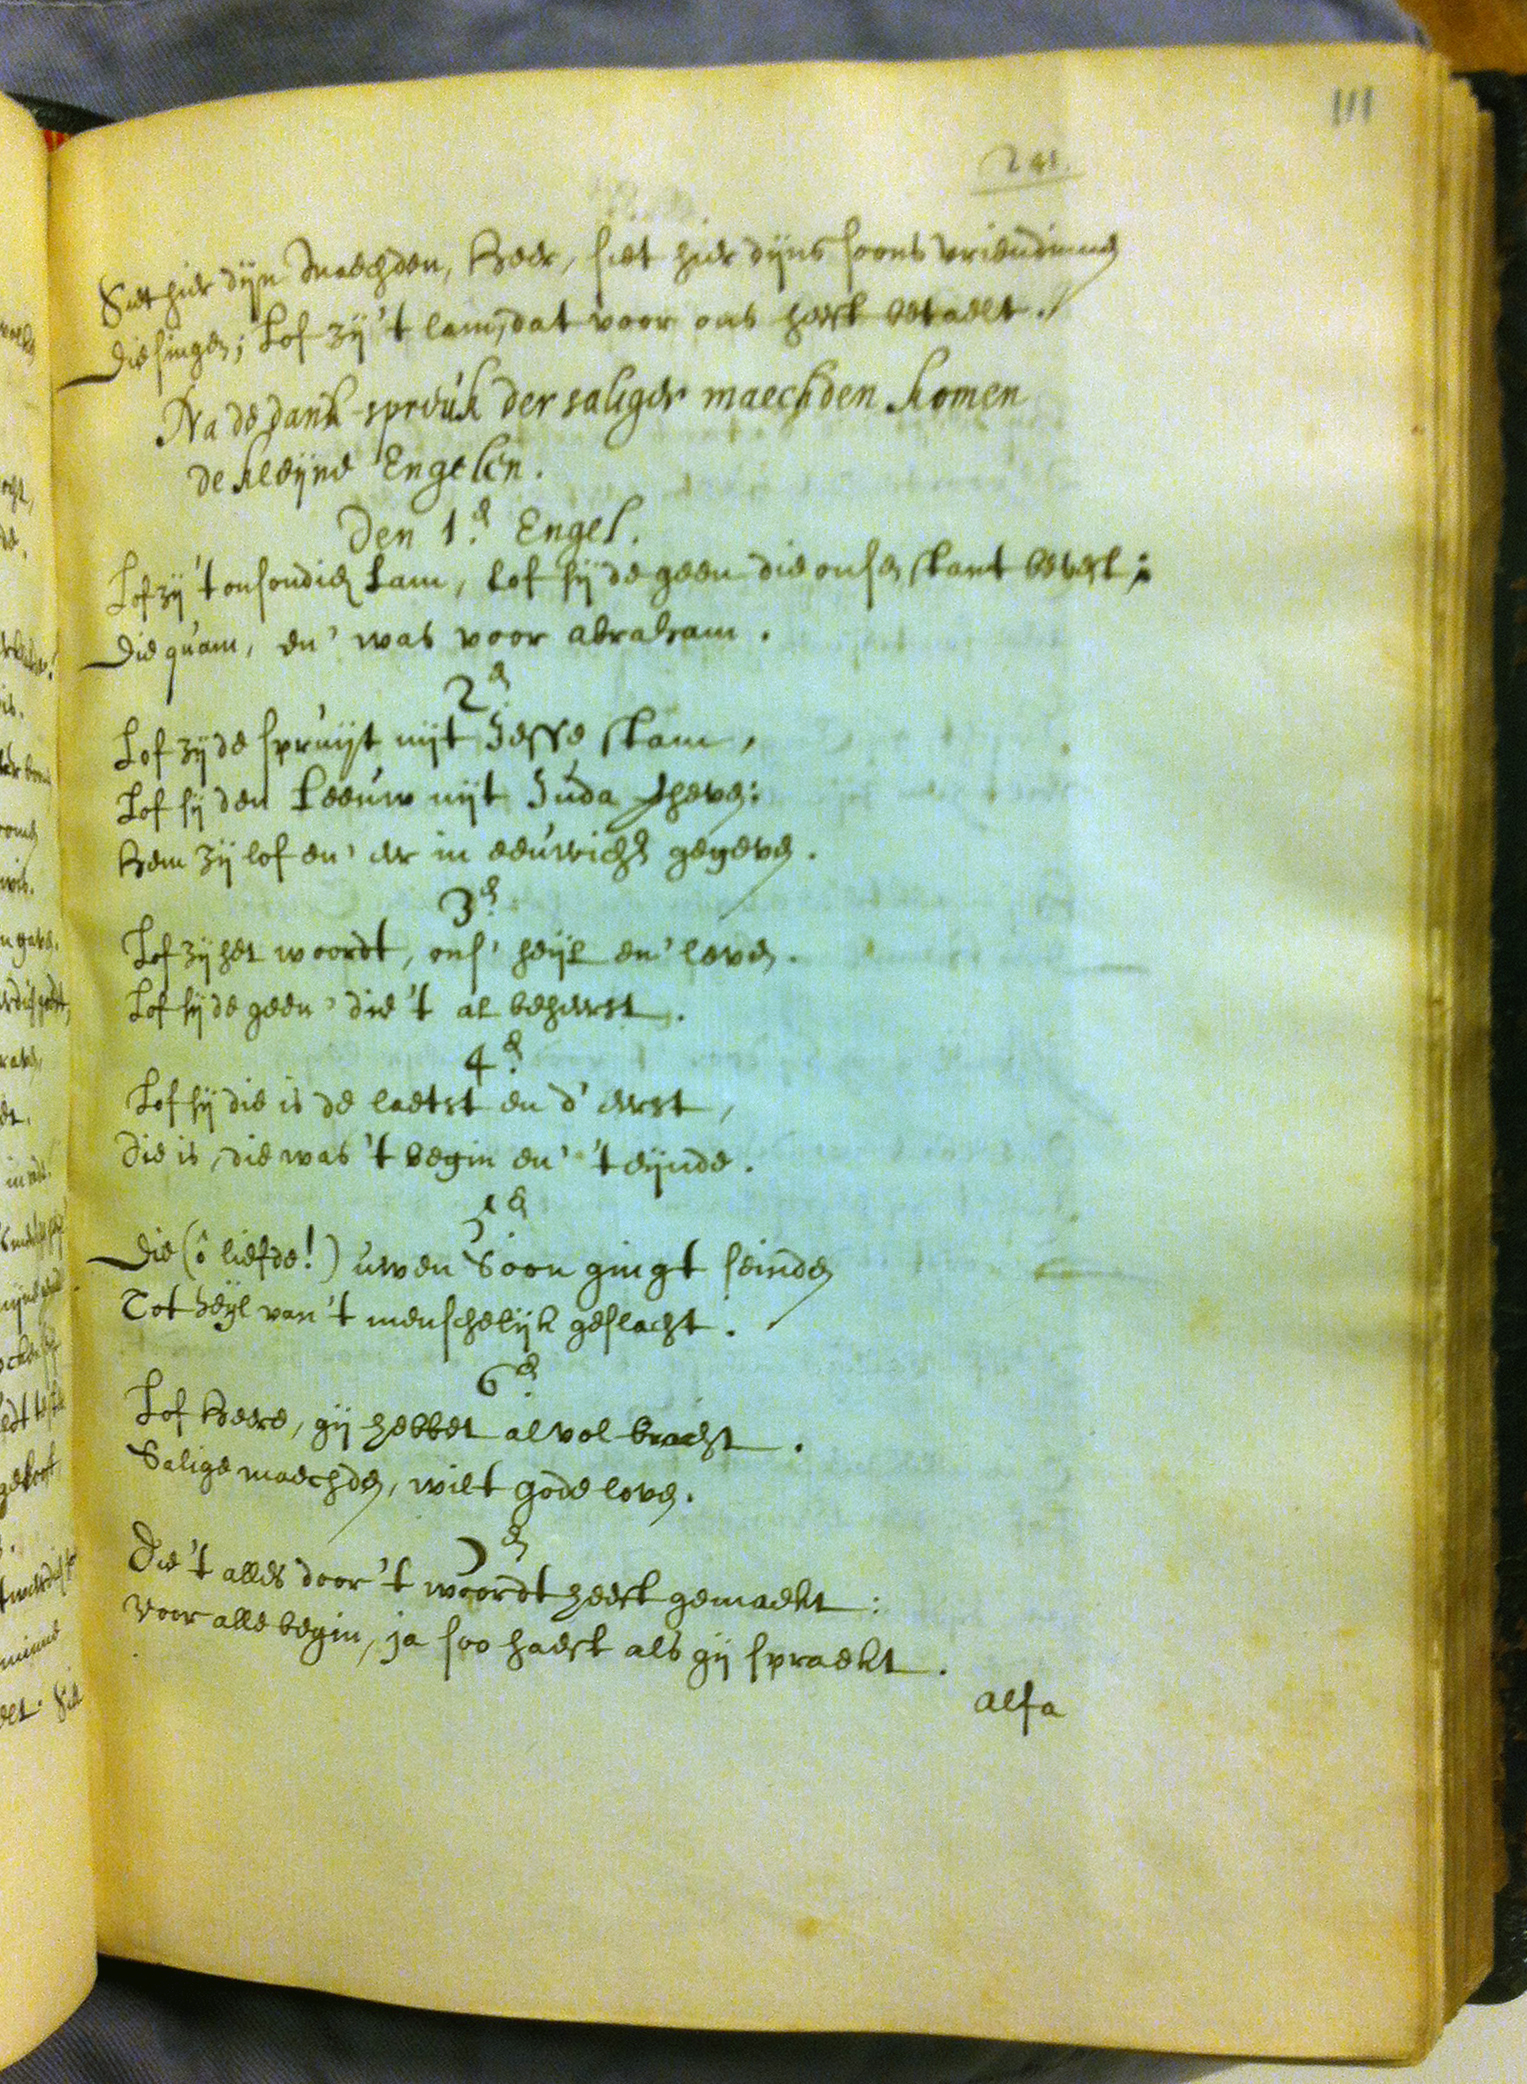 111
241.
Siet hier dijn Maechden, Heer, siet hier dijns soons vriendinnen
Die singen; Lof zij 't lam, dat voor ons heeft betaelt.
Na de dank-spreuk der saliger maechden komen
de kleijne Engelen.
Den 1.e Engel.
Lof zij 't onsondich Lam, lof sij de geen die onsen
Die quam, en' was voor abraham.
2.e
Lof zij de spruijt uijt Jesse stam,
Lof sij den Leeuw uijt Juda
Hem zij lof en' eer in eeuwicht gegeven.
3.e
Lof zij het woordt, ons' heijl en' leven.
Lof sij de geen' die 't al beheerst.
4.e
Lof sij die is de laetst en d' eerst,
Die is, die was 't begin en' 't eijnde.
5.e
Die (ô liefde!) uwen Soon gingt seinden
Tot heijl van 't menschelijk geslacht.
6.e
Lof Heere, gij hebbet al vol bracht.
Salige maechden, wilt gode loven.
7.e
Die 't alles door 't woordt heeft gemaekt:
voor alle begin, ja soo haest als gij spraekt.
alfa